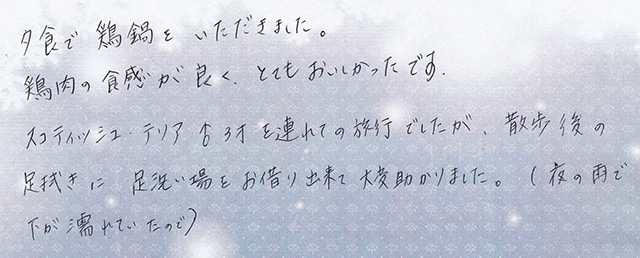 夕食で 鶏鍋を いただきました。
鶏肉の食感が良く、とてもおいしかったです.
スコティッシュ・テリア ♀3才を連れての旅行でしたが、散歩後の
足拭きに 足洗い場をお借り出来て大変助かりました。(夜の雨で
下が濡れていたので)